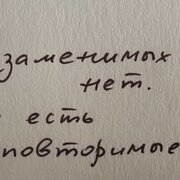 заменимых
нет.
есть
повторимые